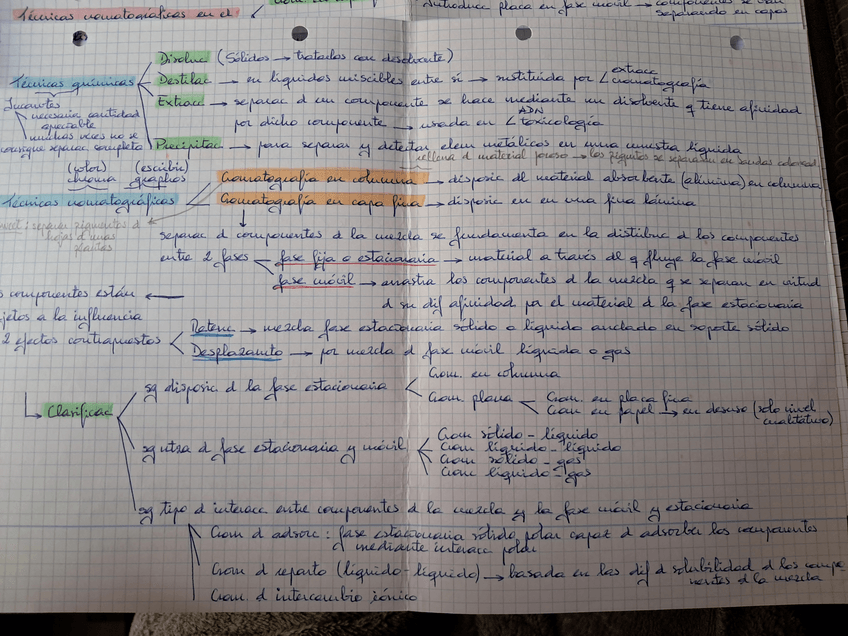 Técnicas cromatográficas en el
Introducc placa en fase móvil → componentes se van
separando en capas
Disoluc (Sólidos → tratados con disolvente)
Técnicas químicas
Destilac → en líquidos miscibles entre sí → sustituída por extracc
cromatografía
Extracc → separac d un componente se hace mediante un disolvente q tiene afinidad
por dicho componente → usada en ADN
toxicología
necesaria cantidad
apreciable
muchas veces no se
consigue separac completa
Precipitac → para separar y detectar elem metálicos en una muestra líquida
rellena d material poroso → los pigmtos se separan en bandas coloread
(color) (escribir)
chroma graphos
Cromatografía en columna → disposic dl material absorbente (alúmina) en columna
Técnicas cromatográficas
Cromatografía en capa fina → disposic en en una fina lámina
: separar pigmentos d
hojas d unas
plantas
separac d componentes d la mezcla se fundamenta en la distribuc d los componentes
entre 2 fases
fase fija o estacionaria → material a través dl q fluye la fase móvil
fase móvil → arrastra los componentes d la mezcla q se separan en virtud
d su dif afinidad por el material d la fase estacionaria
s componentes están
jetos a la influencia
2 efectos contrapuestos
Retenc → mezcla fase estacionaria sólido o líquido anclado en soporte sólido
Desplazamto → por mezcla d fase móvil líquida o gas
Clasificac
sg disposic d la fase estacionaria
Crom. en columna
Crom. plana
Crom. en placa fina
Crom en papel → en desuso (solo nivel
cualitativo)
sg ntza d fase estacionaria y móvil
Crom sólido - líquido
Crom líquido - líquido
Crom sólido - gas
Crom líquido - gas
sg tipo d interacc entre componentes d la mezcla y la fase móvil y estacionaria
Crom d adsorc : fase estacionaria sólido polar capaz d adsorber los componentes
mediante interacc
Crom d reparto (líquido-líquido) → basada en las dif d solubilidad d los compo-
nentes d la mezcla
Crom. d intercambio iónico